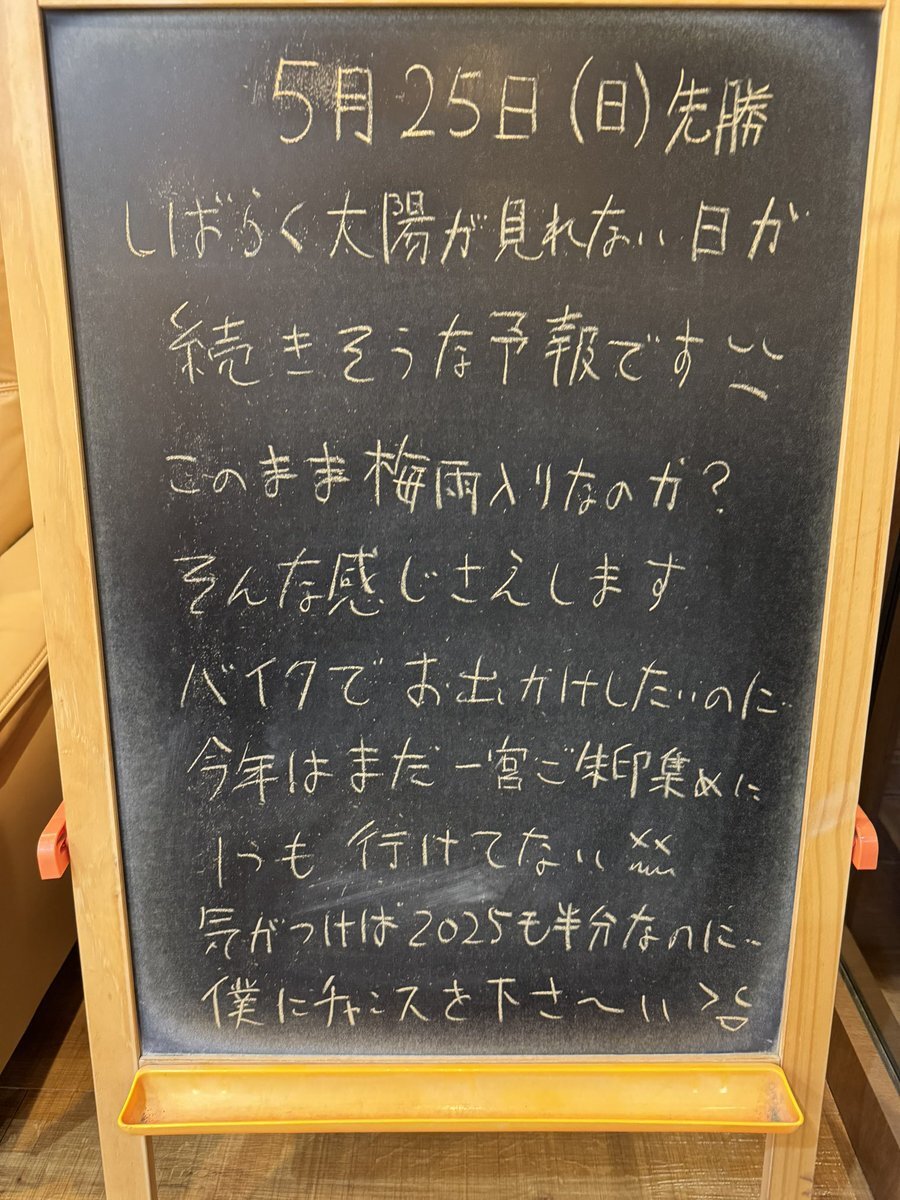 5月25日(日)先勝
しばらく太陽が見れない日が
続きそうな予報です
このまま梅雨入りなのか?
そんな感じさえします
バイクでお出かけしたいのに…
今年はまだ一宮ご朱印集めに
1つも行けてない
気がつけば2025も半分なのに…
僕にチャンスを下さ〜い